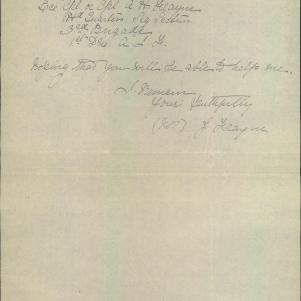 Sec Cpl or Cpl A H Frayne
Hd Quarters Sig Section
3rd Brigade
1st Div A. I. F.
Hoping that you will be able to help me.
I Remain
Yours Faithfully
Frayne